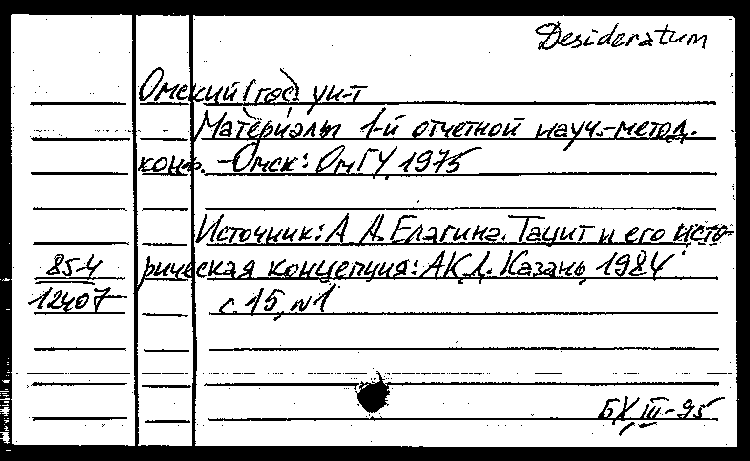 Desideratum
Омский (гос) ун-т
Материалы 1-й отчетной науч.-метод.
конф. - Омск: ОмГУ, 1975
Источник: А. А. Елагина. Тацит и его исто-
рическая концепция: АКД. Казань, 1984
85-4
12407
с. 15, №1
БХ, III-95